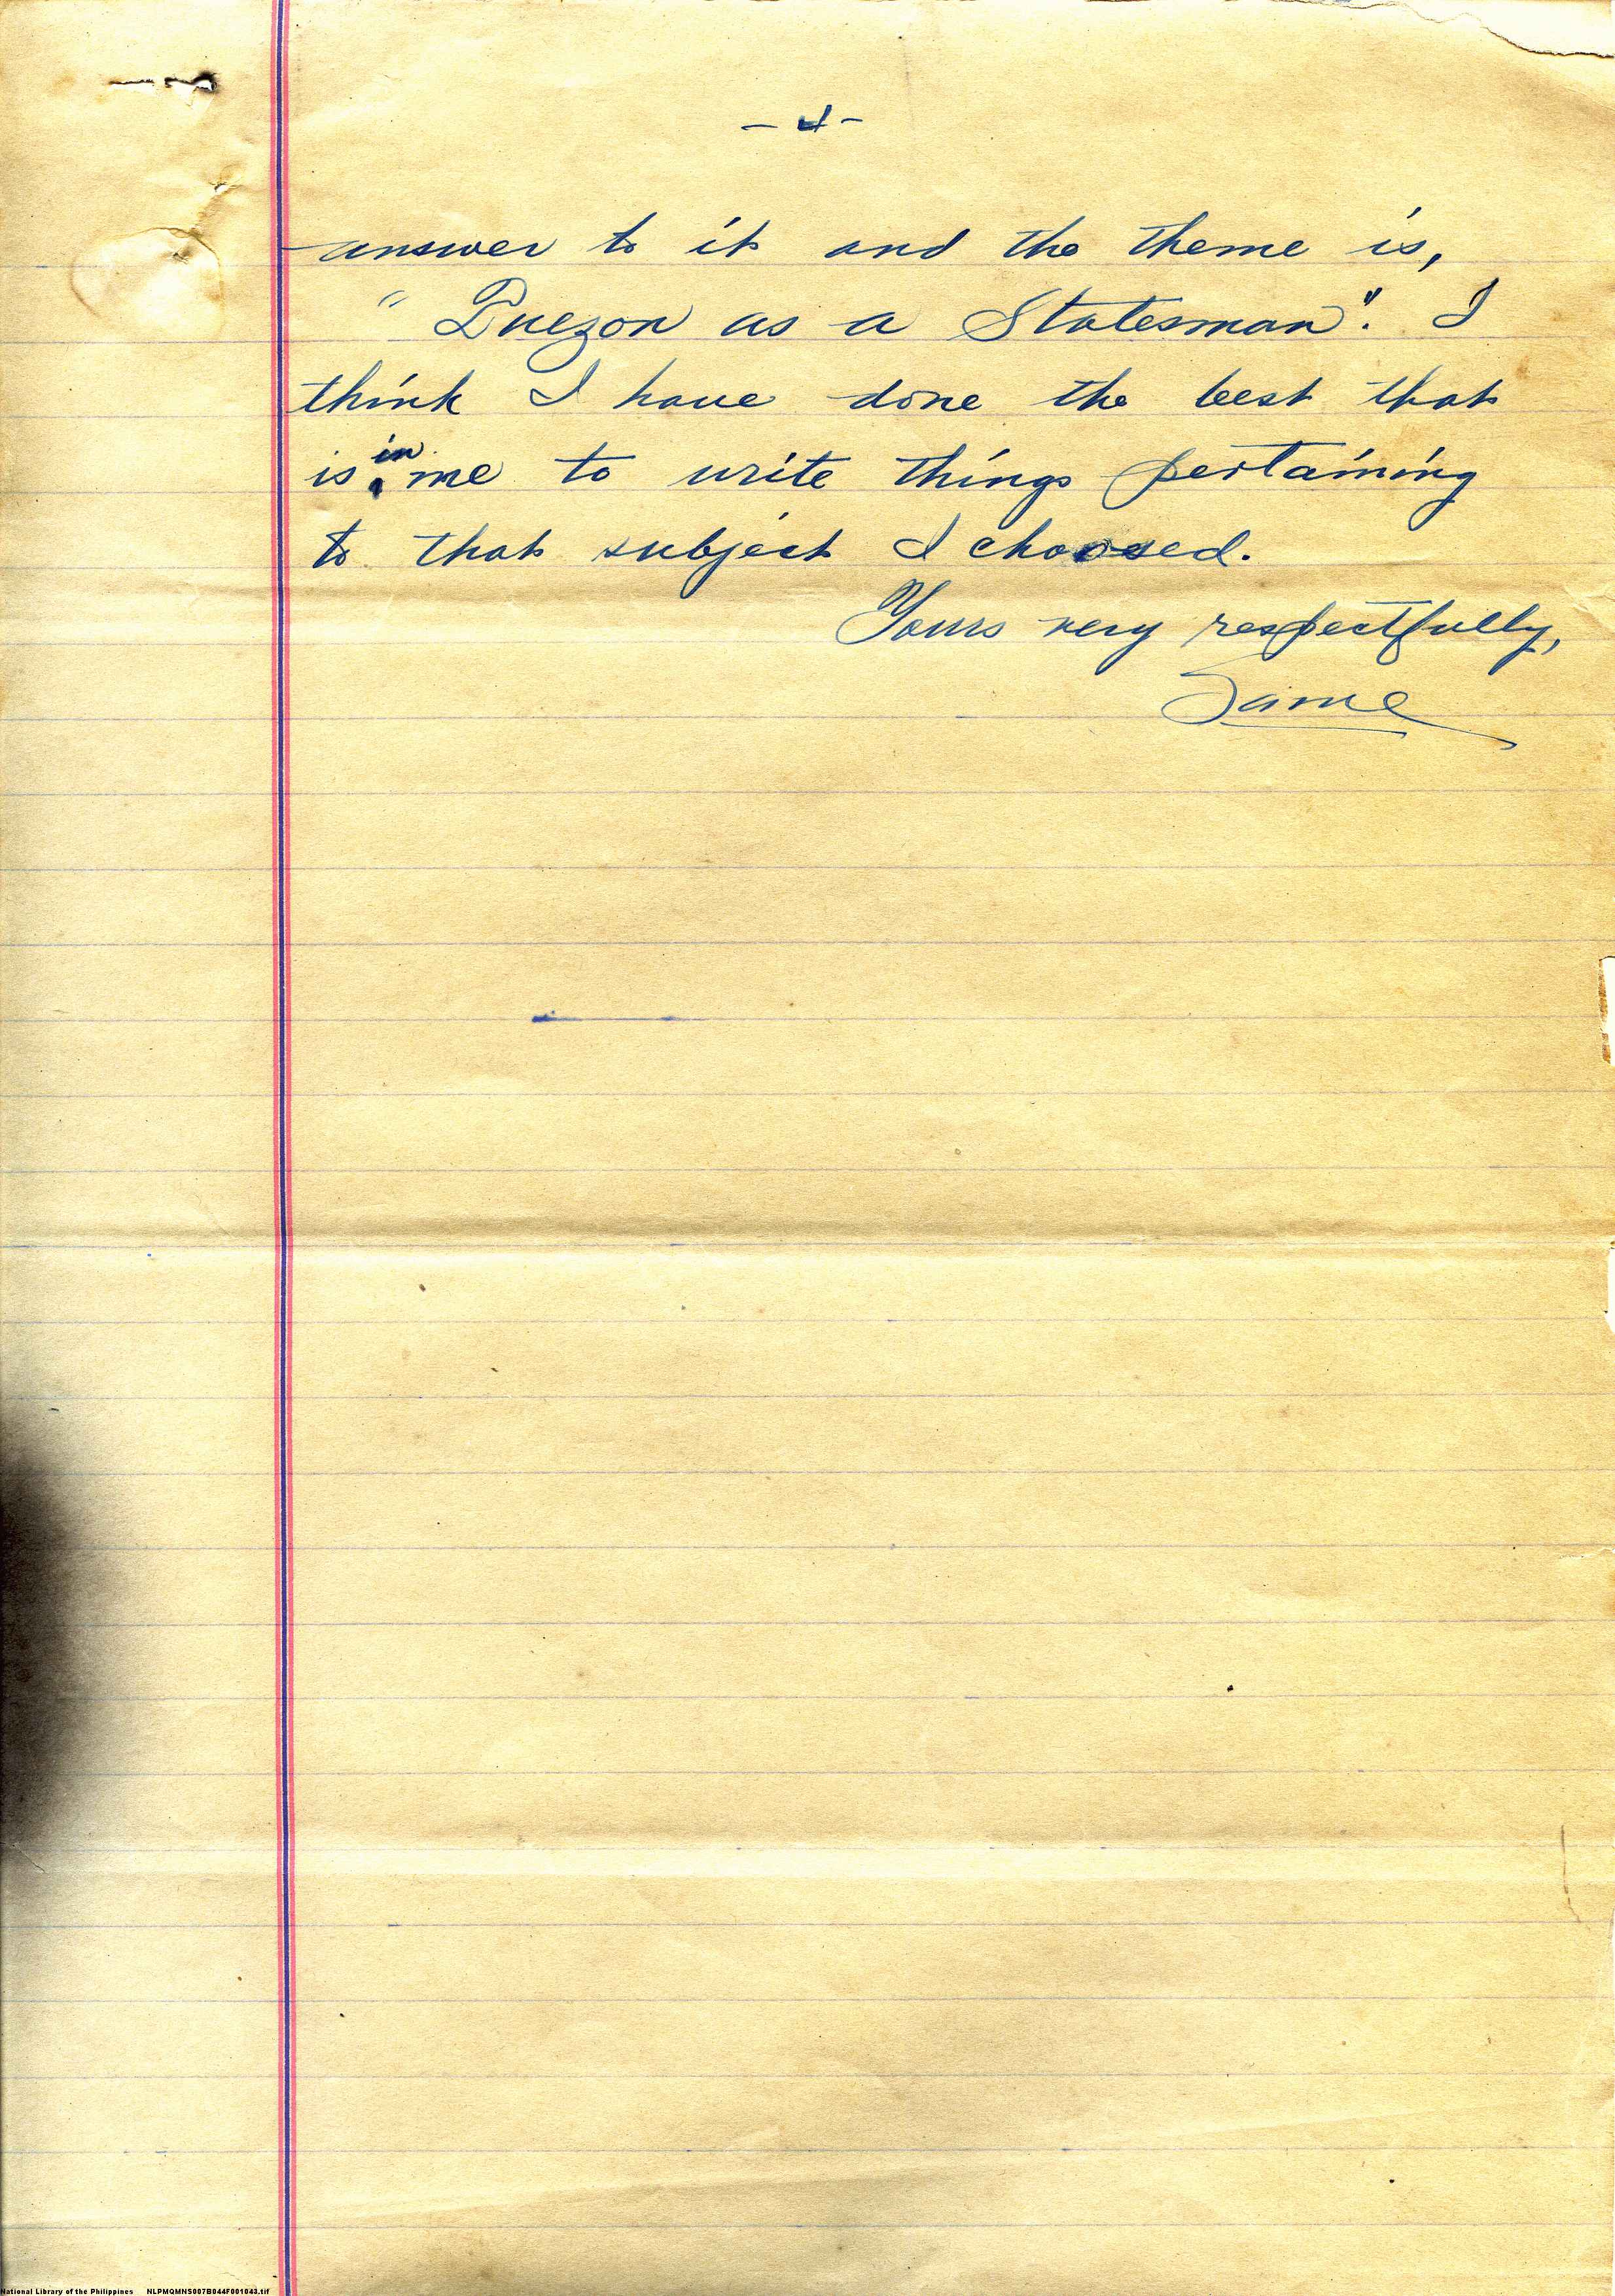 - 4 -
answer to it and the theme is,
" Quezon as a Statesman". I
think I have done the best that
is in me to write things pertaining
to that subject I choosed.
Yours very respectfully,
Same
National Library of the Philippines NLPMQMNS007B044F001043.tif